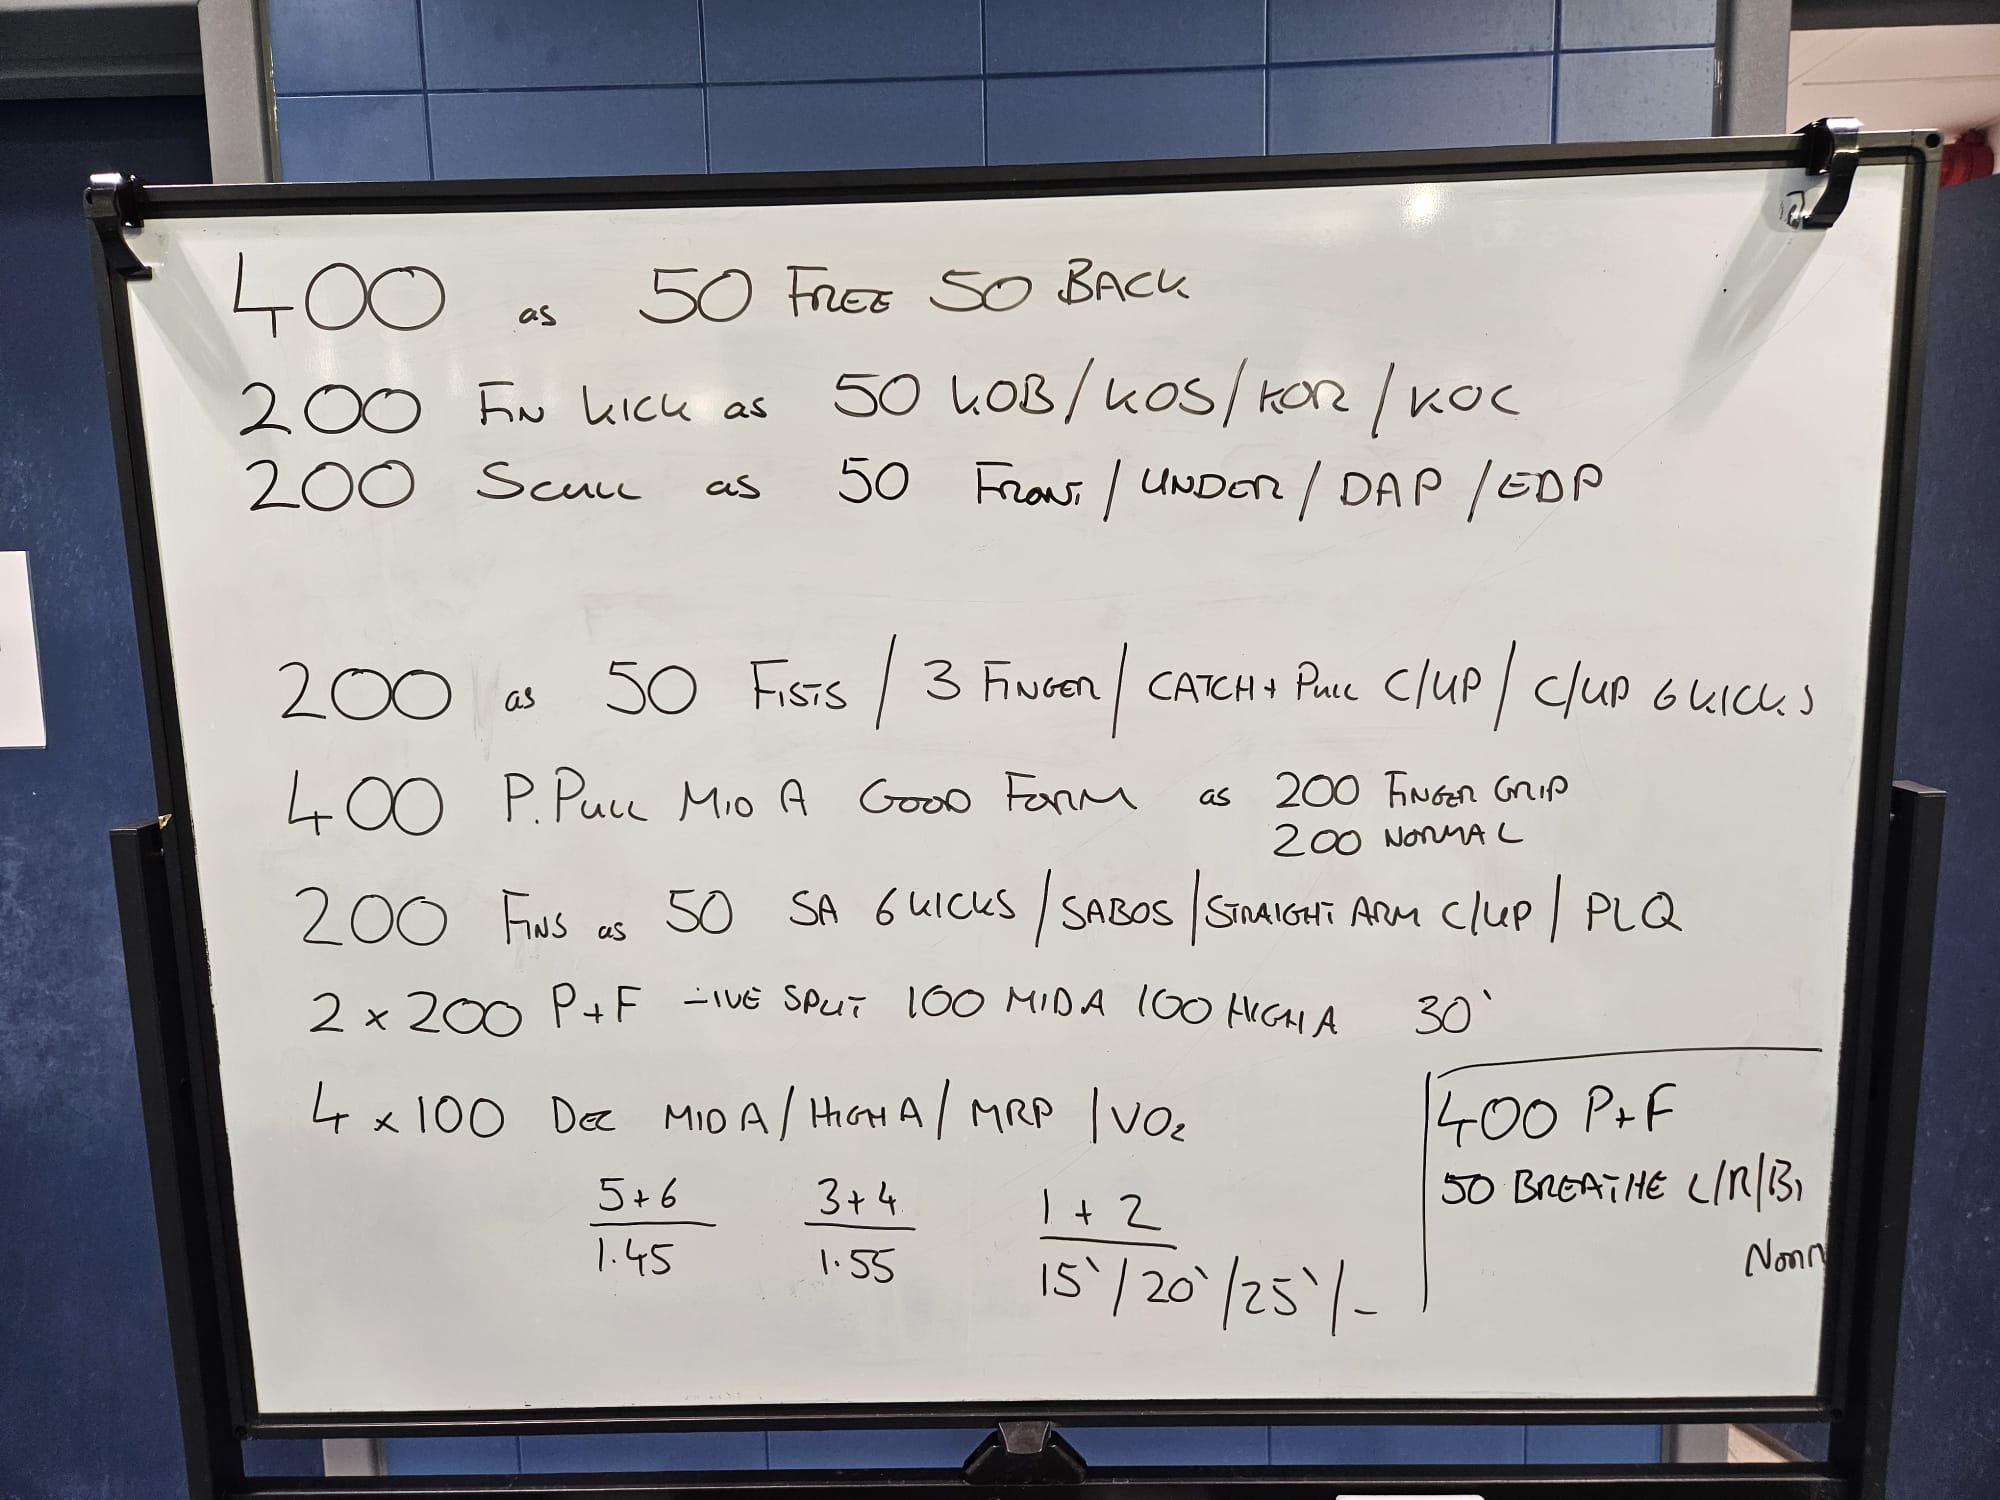 400 as 50 FREE 50 BACK
200 FIN KICK as 50 KOB/KOS/KOR/KOC
200 SCULL as 50 FRONT/UNDER/DAP/EDP
200 as 50 FISTS/3 FINGER/CATCH + PULL C/UP/C/UP 6 KICKS
400 P.PULL MID A GOOD FORM as 200 FINGER GRIP
200 NORMAL
200 FINS as 50 SA 6 KICKS/SABOS/STRAIGHT ARM C/UP/PLQ
2 x 200 P+F -IVE SPLIT 100 MID A 100 HIGH A 30`
4 x 100 DEC MID A/HIGH A/MRP/VO2
5+6 3+4 1+2
1.45 1.55 15`/20`/25`/-
400 P+F
50 BREATHE L/R/Bi
Norm